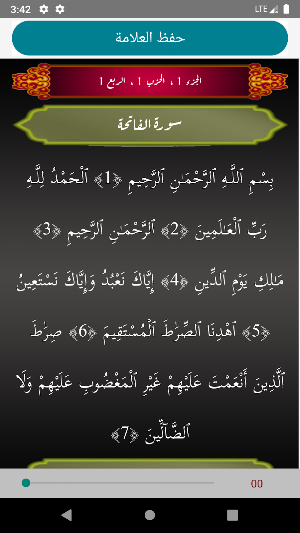 3:42 LTE
حفظ العلامة
الجزء 1، الحزب 1، الربع 1
سورة الفاتحة
بِسْمِ ٱللَّهِ ٱلرَّحْمَـٰنِ ٱلرَّحِيمِ ﴿1﴾ ٱلْحَمْدُ لِلَّهِ
رَبِّ ٱلْعَـٰلَمِينَ ﴿2﴾ ٱلرَّحْمَـٰنِ ٱلرَّحِيمِ ﴿3﴾
مَـٰلِكِ يَوْمِ ٱلدِّينِ ﴿4﴾ إِيَّاكَ نَعْبُدُ وَإِيَّاكَ نَسْتَعِينُ
﴿5﴾ ٱهْدِنَا ٱلصِّرَٰطَ ٱلْمُسْتَقِيمَ ﴿6﴾ صِرَٰطَ
ٱلَّذِينَ أَنْعَمْتَ عَلَيْهِمْ غَيْرِ ٱلْمَغْضُوبِ عَلَيْهِمْ وَلَا
ٱلضَّآلِّينَ ﴿7﴾
00